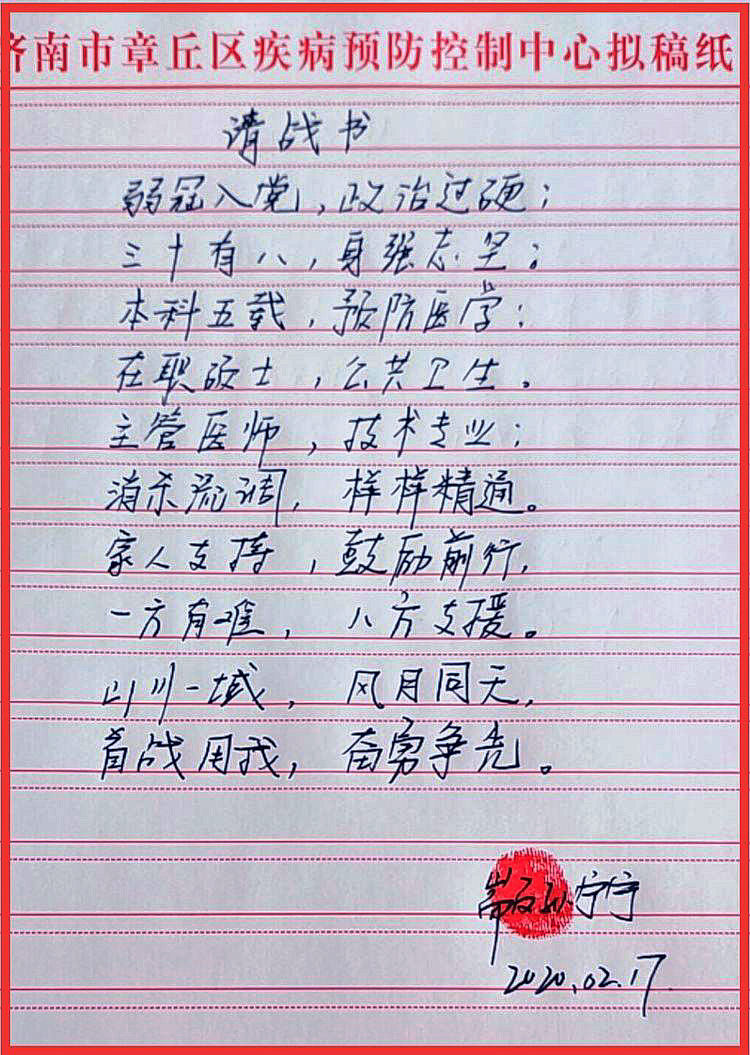 济南市章丘区疾病预防控制中心拟稿纸
请战书
弱冠入党，政治过硬；
三十有八，身强志坚；
本科五载，预防医学；
在职硕士，公共卫生。
主管医师，技术专业；
消杀流调，样样精通。
家人支持，鼓励前行，
一方有难，八方支援。
山川一域，风月同天，
首战用我，奋勇争先。
孙宁宁
2020.02.17